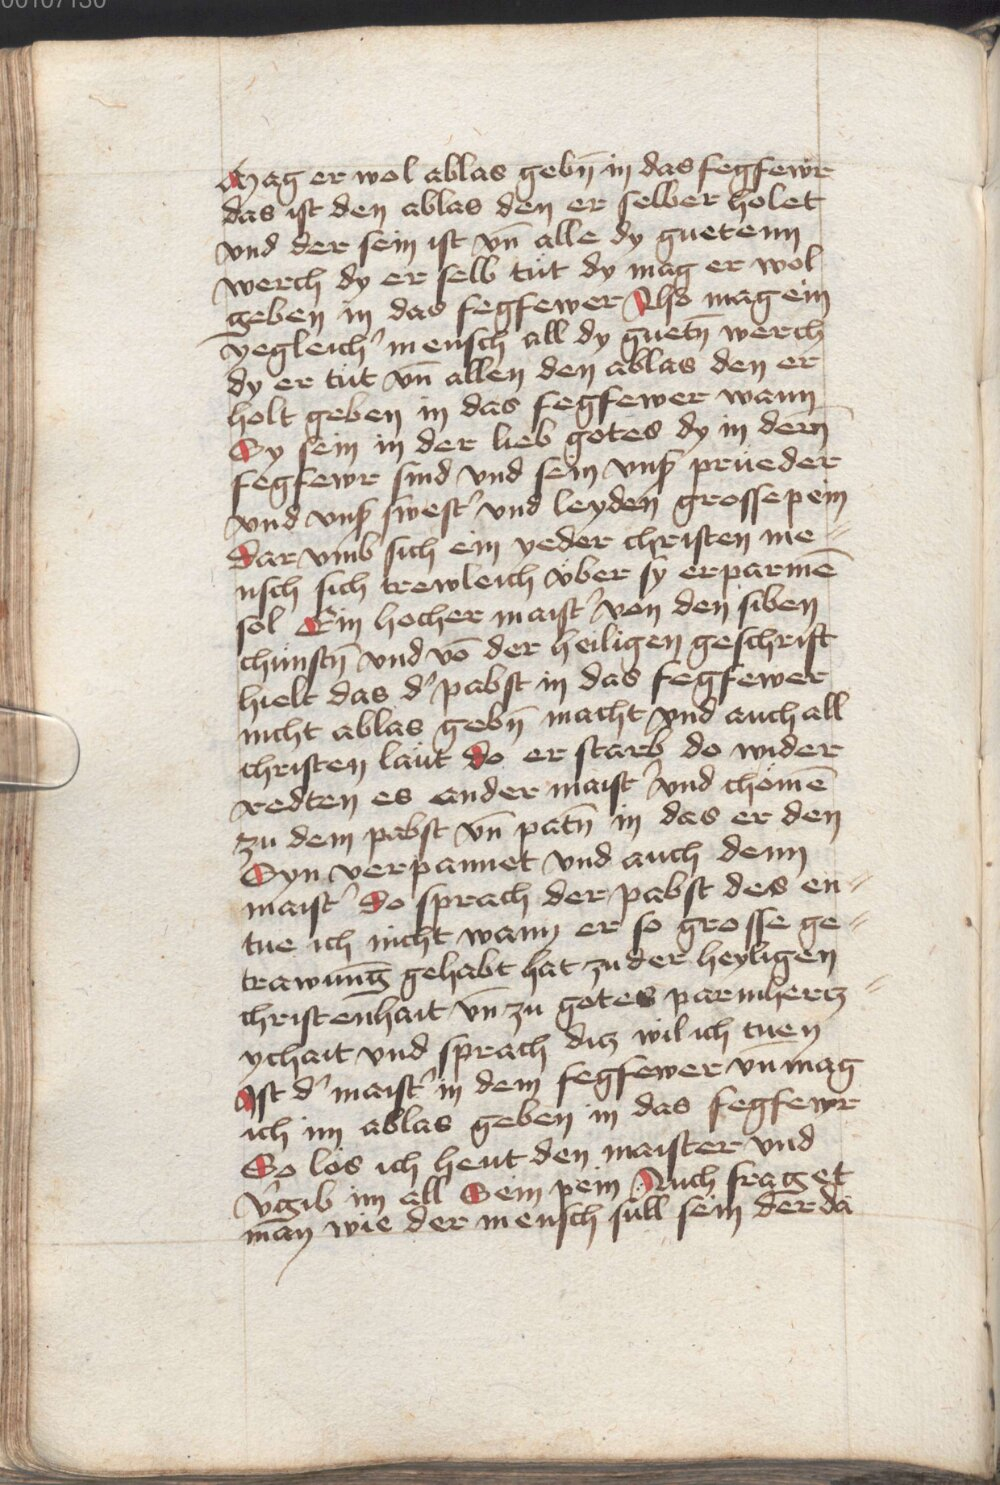 00107130
Mag er wol ablas gebn̄ in das fegfewr
das ist den ablas den er selber holet
vnd der sein ist vn̄ alle dy guetenn
werch dy er selb tüt dy mag er wol
geben in das fegfewer Also mag ein
yegleich' mensch all dy guetn̄ werch
dy er tüt vn̄ allen den ablas den er
holt geben in das fegfewer wann
Sy sein in der lieb gotes dy in dem̄
fegfewr sind vnd sein vnsʼ prüeder
vnd vnsʼ swest' vnd leyden grosse pein
Dar vmb sich ein yeder christen me=
nsch sich trewleich vber sy erparmē
sol Ein hocher maist' von den siben
chünstn̄ vnd vō der heiligen geschrift
hielt das d' pabst in das fegfewer
nicht ablas gebn̄ macht vnd auch all
christen laüt do er starb do wider
redten es ander maist' vnd chömē
zu dem pabst vn̄ patn̄ in das er den
Syn verpannet vnd auch denn
maist' Do sprach der pabst des en=
tue ich nicht wann er so grosse ge=
trawung gehabt hat zu der heyligen
christenhait vn̄ zu gotes parmhertz=
ychait vnd sprach ditz wil ich tuen
Ist d' maist' in dem fegfewer vn̄ mag
ich im ablas geben in das fegfewr
So lös ich heut den maister vnd
v'gib im all Sein pein Auch fraget
man wie der mensch süll sein der da